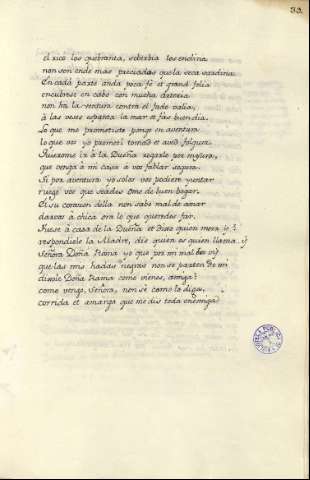 33.
el rico los quebranta, soberbia los enclina
non son ende mas preciadas que la seca sardina
En cada parte anda poca fe et grand folia
encubrese en cabo con mucha arteria
non ha la ventura contra el fado valia,
á las veses espanta la mar et fas buen dia.
Lo que me prometiste pongo en aventura
lo que vos yo prometí tomad et aved folgura
Quierome ir á la Dueña rogarle por mesura,
que venga á mi casa á vos fablar segura.
Si por aventura yo solos vos podiere juntar
ruego vos que seades ome de buen logar.
El su corason della non sabe mal de amar
daravos á chica ora lo que queredes far.
Fuese á casa de la Dueña et dixo quien mora
respondiole la Madre, dis quien es quien llama y
Señora Doña Rama yo que por mi mal vos vy
que las mis hadas negras non se parten de mi
dixole Doña Rama como vienes, amiga?
como vengo, Señora, non sé como lo diga,
corrida et amarga que me dis toda enemiga